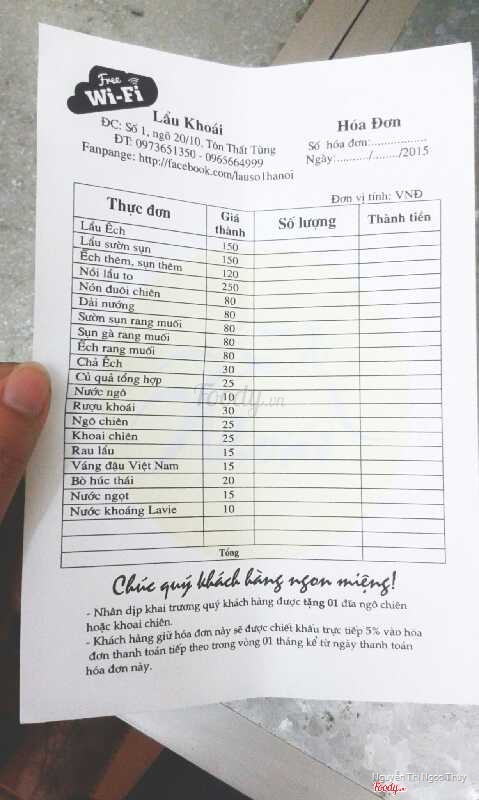 Free
Wi-Fi
Lẩu Khoái
ĐC: Số 1, ngõ 20/10, Tôn Thất Tùng
ĐT: 0973651350 - 0965664999
Fanpange: http://facebook.com/lauso1hanoi
Hóa Đơn
Số hóa đơn:................
Ngày:........../......../2015
Đơn vị tính: VNĐ
Thực đơn Giá thành Số lượng Thành tiền
Lẩu Ếch 150
Lẩu sườn sụn 150
Ếch thêm, sụn thêm 120
Nồi lẩu to 250
Nón đuôi chiên 80
Dải nướng 80
Sườn sụn rang muối 80
Sụn gà rang muối 80
Ếch rang muối 80
Chả Ếch 30
Củ quả tổng hợp 25
Nước ngô
Rượu khoái 30
Ngô chiên 25
Khoai chiên 25
Rau lẩu 15
Váng đậu Việt Nam 15
Bò húc thái 20
Nước ngọt 15
Nước khoáng Lavie 10
Tổng
Chúc quý khách hàng ngon miệng!
- Nhân dịp khai trương quý khách hàng được tặng 01 đĩa ngô chiên
hoặc khoai chiên.
- Khách hàng giữ hóa đơn này sẽ được chiết khấu trực tiếp 5% vào hóa
đơn thanh toán tiếp theo trong vòng 01 tháng kể từ ngày thanh toán
hóa đơn này.
Foody.vn
Nguyễn Thị Ngọc Thúy
Foody.vn